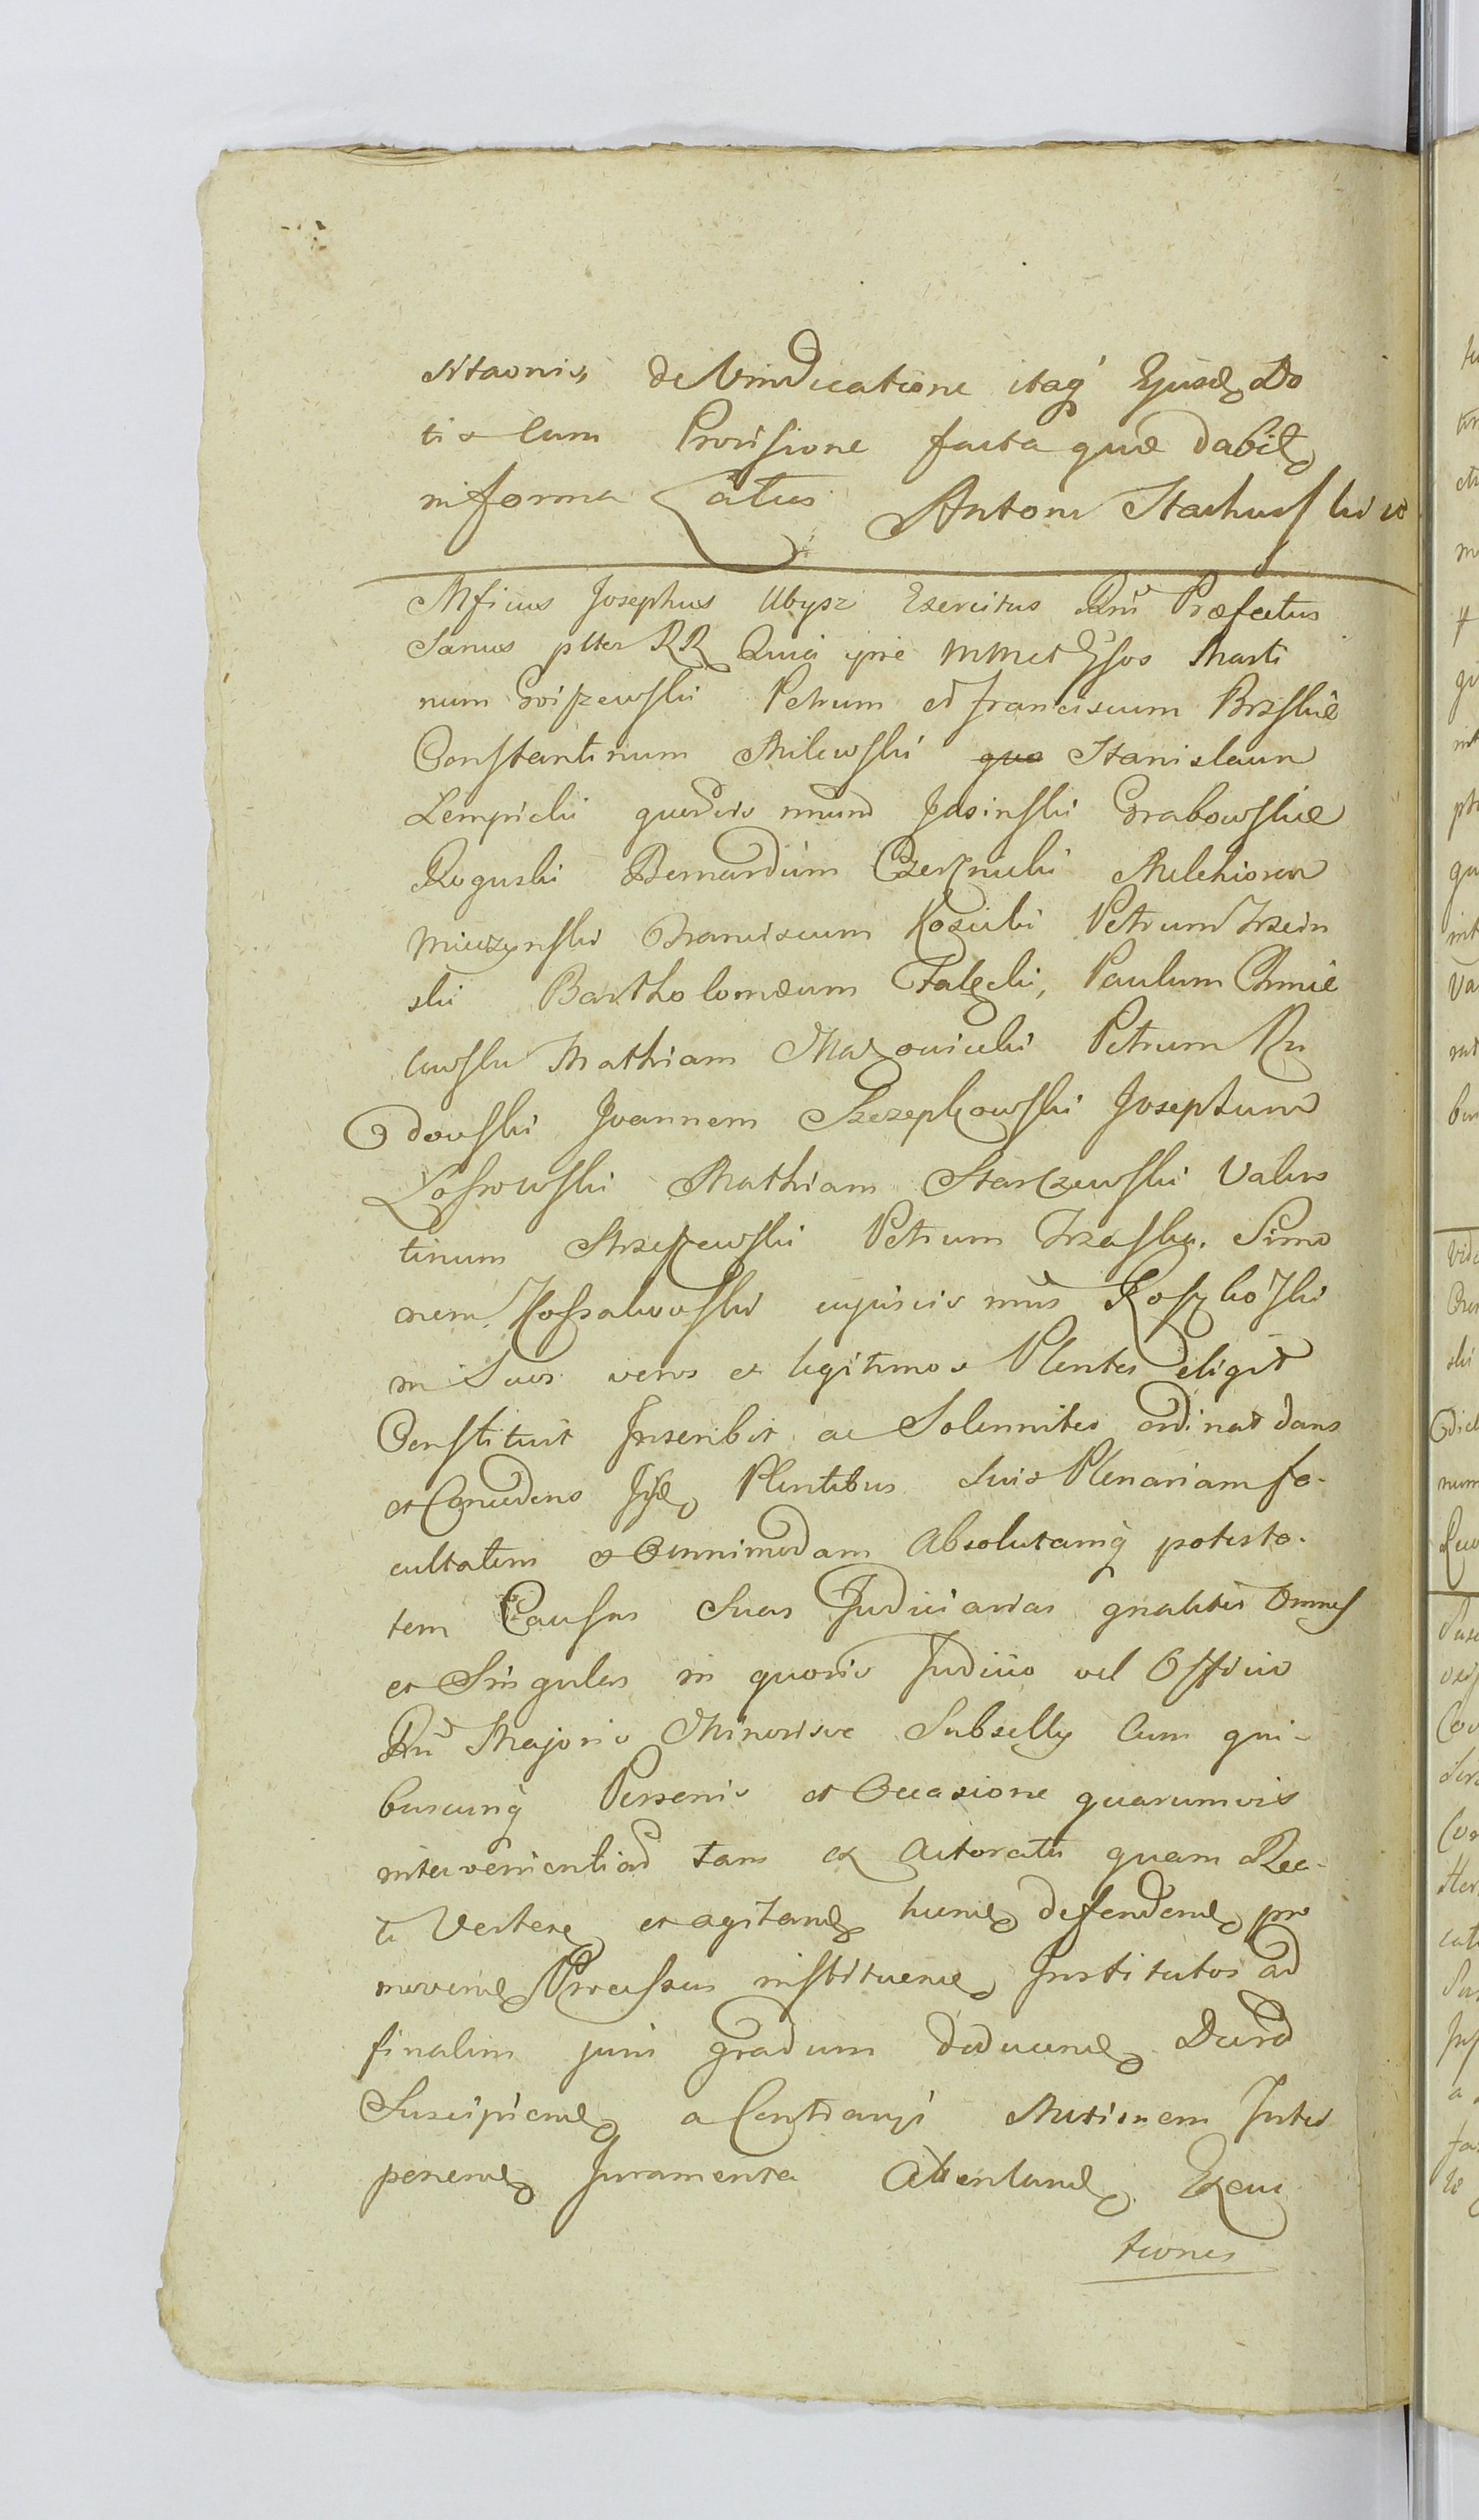 sitaonis de Vindicatione itaq Ejusd Do
tis Cum Provisione facta quæ dabit
in forma Latius Antoni Stachurski
Mficus Josephus Ubysz Exercitus Rni Præfectus
Sanus ptter RR Quia ipse MMet Gsos Marti
num Groszewski Petrum et Franciscum Brzskie
Constantinum Milewski quo Stanislaum
Lempicki quorvis nnum Jasinski Grabowskie
Roguski Bernardum Czerznicki Melchiorem
Mieczynski Franciscum Kozicki Petrum Trzcin
ski Bartholomæum Falęcki, Paulum Chmie
lewski Mathiam Mazowiecki Petrum Ru
dowski Joannem Szczepkowski Josephum
Lossowski Mathiam Starczewski Valen
tinum Strzeszewski Petrum Trzaska. Simo
nem Kossakowski cujusvis nnis Koszkoski
in Suos veros et legitimos Plentes eligit
Constituit Inscribit ac Solenniter ordinat dans
et Concedens Iisd Plentibus Suis Plenariam fa-
cultatem et Omnimodam Absolutamq potesta-
tem Causas Suas Judiciarias gnaliter Omnes
et Singulas in quovis Judicio vel Officio
Rni Majoris Minorisve Subselly Cum qui-
buscunq Personis et Occasione quarumvis
intervenientiad tam ex Actoratu quam Rea-
ti Vertere et agitand hunc defendend pro
movend Processus instituend Institutos ad
finalem juris gradum deducend Decrd
Suscipiend a Contrariis Motionem Inter
ponend Juramenta Attentand Execu
tiones